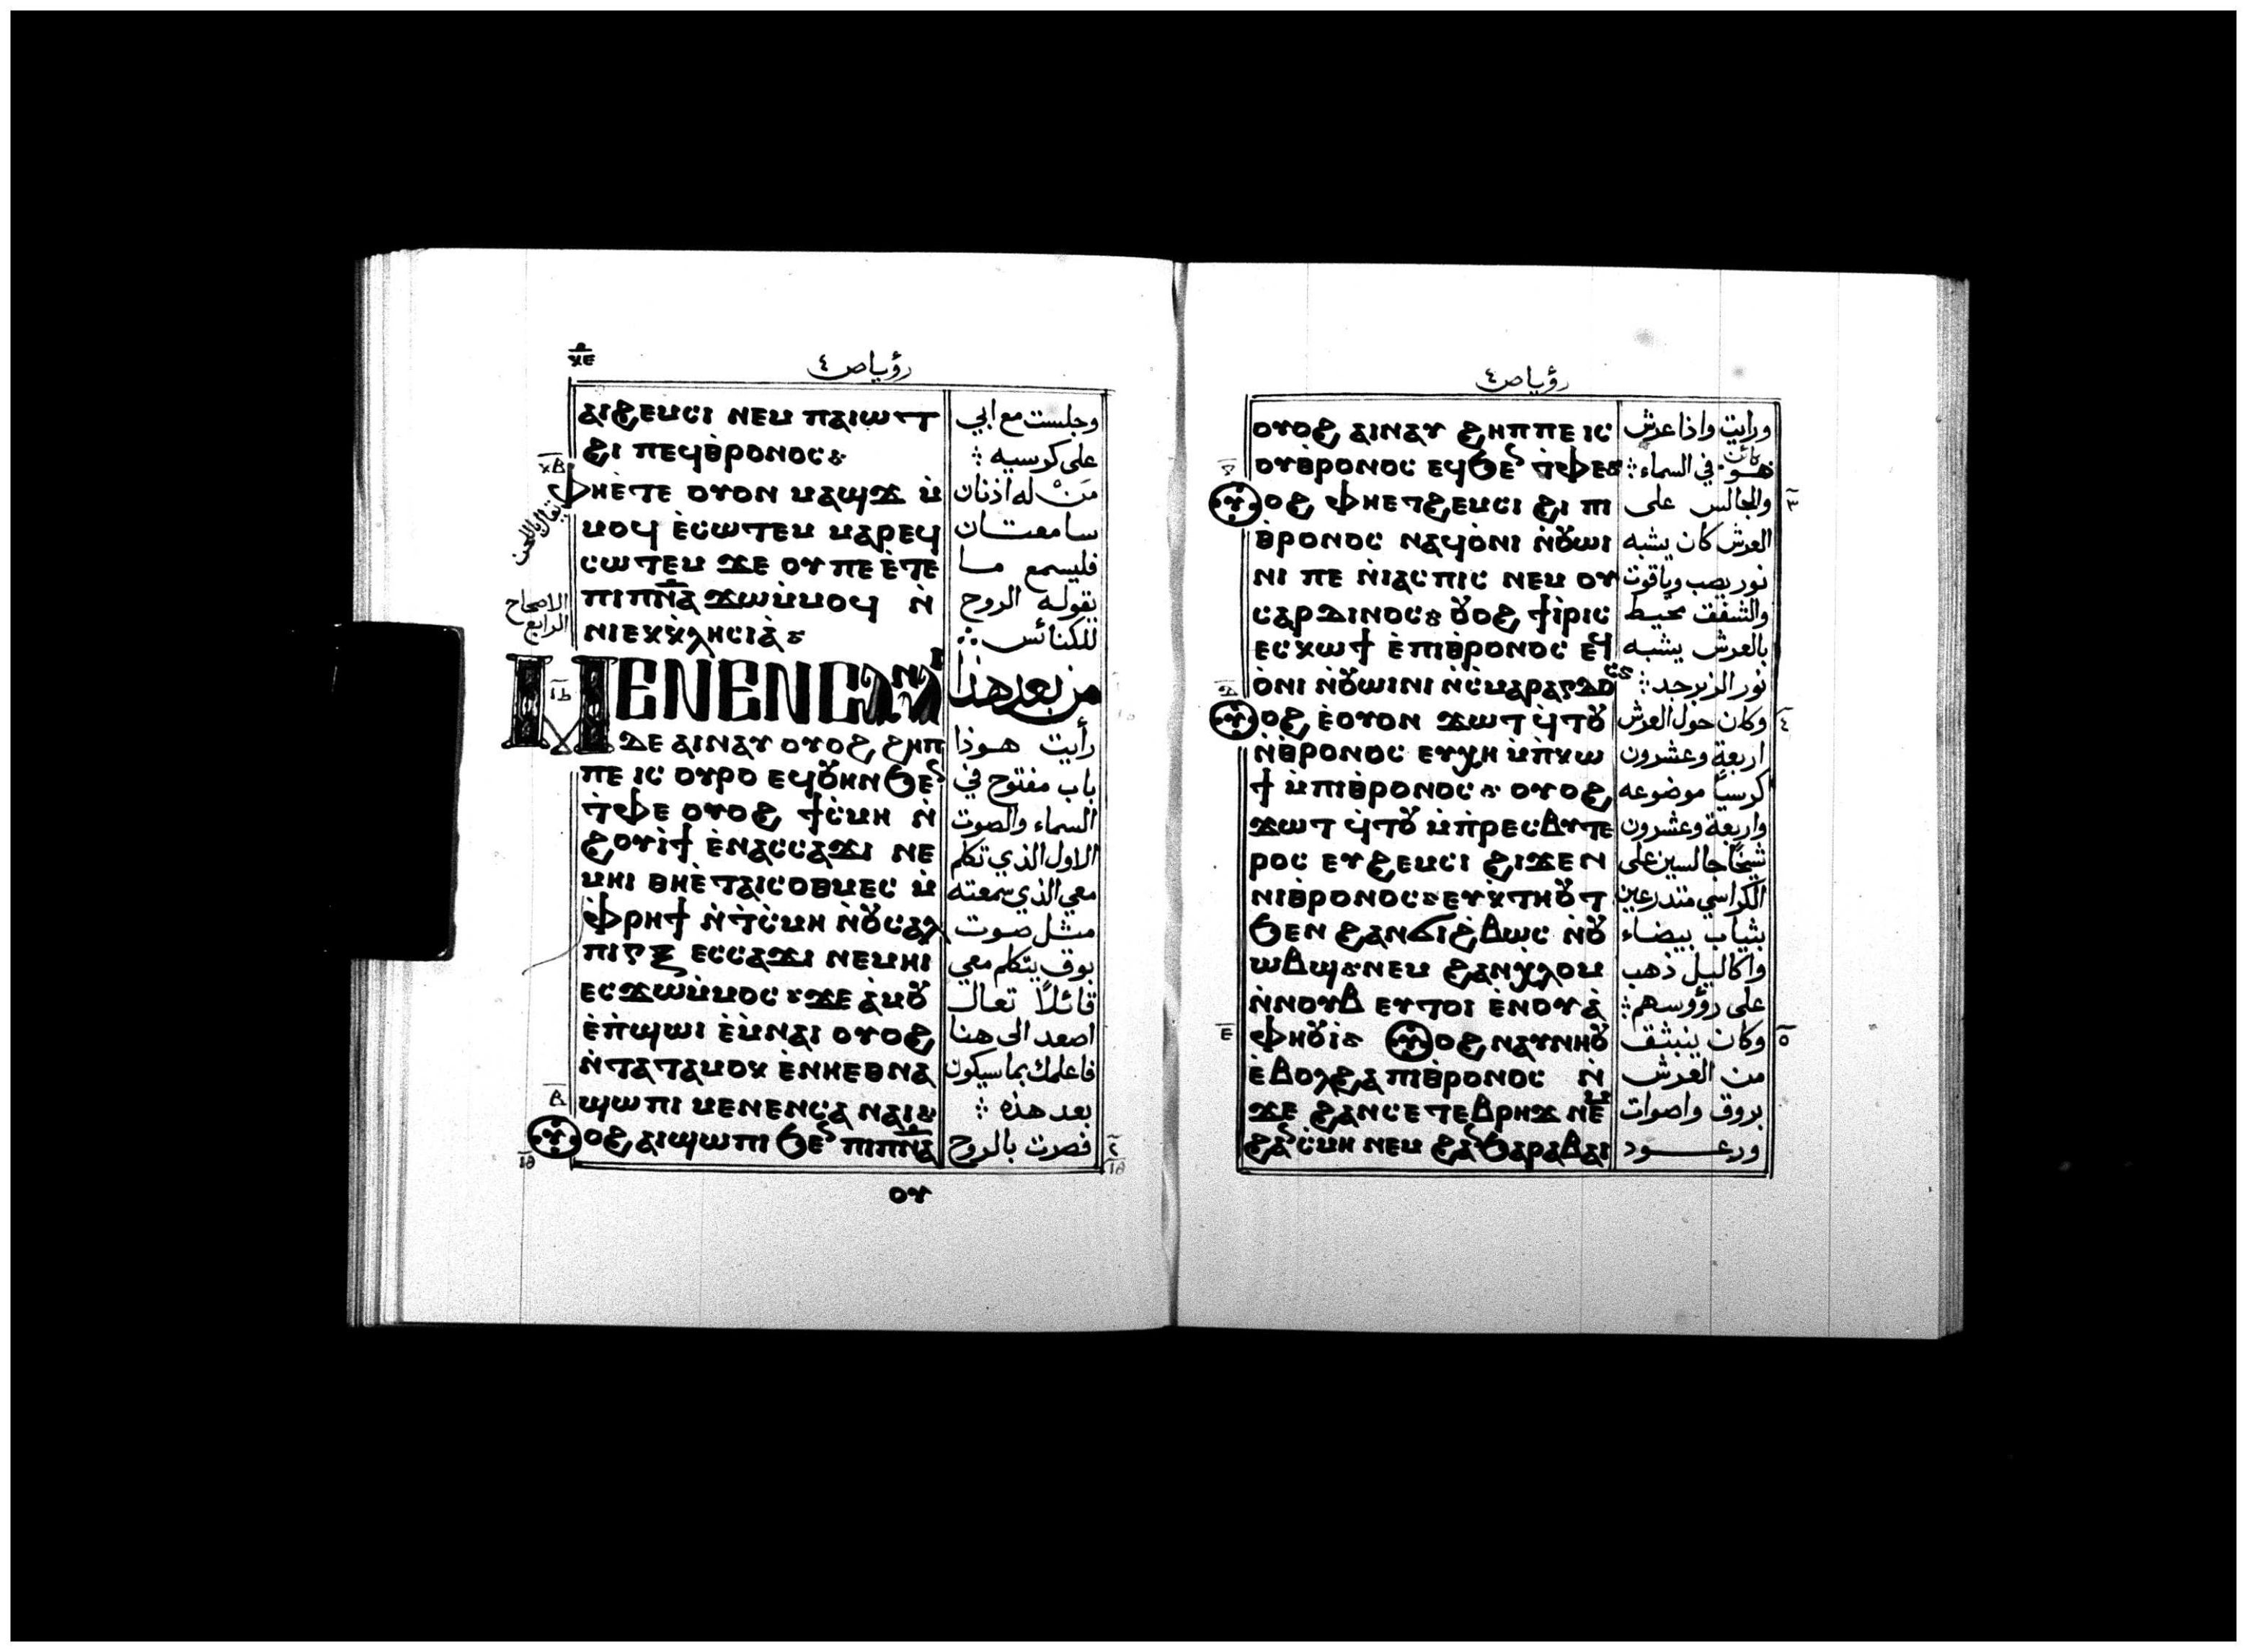 ⲕⲉ
رؤيا ص ٤
ⲁⲓϩⲉⲙⲥⲓ ⲛⲉⲙ ⲡⲁⲓⲱⲧ
ϩⲓ ⲡⲉϥⲑ̀ⲣⲟⲛⲟⲥ:
ⲕⲃ
ⲫⲏⲉ̀ⲧⲉ ⲟⲩⲟⲛ ⲙⲁϣϫ ⲙ̀
ⲙⲟϥ ⲉ̀ⲥⲱⲧⲉⲙ ⲙⲁⲣⲉϥ
ⲥⲱⲧⲉⲙ ϫⲉ ⲟⲩ ⲡⲉ ⲉ̀ⲧⲉ
ⲡⲓⲡⲛ̅ⲁ̅ ϫⲱⲙ̀ⲙⲟϥ ⲛ̀
ⲛⲓⲉⲕⲕ̀ⲗⲏⲥⲓⲁ̀:
يقال باللحن
الاصحاح
الرابع
ⲙⲉⲛⲉⲛⲥⲁⲛⲁⲓ
ⲇⲉ ⲁⲓⲛⲁⲩ ⲟⲩⲟϩ ϩⲏⲡ
ⲡⲉ ⲓⲥ ⲟⲩⲣⲟ ⲉϥⲟⲩⲏⲛ ϧⲉⲛ
ⲧ̀ⲫⲉ ⲟⲩⲟϩ ϯⲥ̀ⲙⲏ ⲛ̀
ϩⲟⲩⲓ̀ϯ ⲉ̀ⲛⲁⲥⲥⲁϫⲓ ⲛⲉ
ⲙⲏⲓ ⲑⲏⲉ̀ⲧⲁⲓⲥⲟⲑⲙⲉⲥ ⲙ̀
ⲫ̀ⲣⲏϯ ⲛ̀ⲧ̀ⲥ̀ⲙⲏ ⲛ̀ⲟⲩⲥⲁⲗ
ⲡⲓⲅⲝ ⲉⲥⲥⲁϫⲓ ⲛⲉⲙⲏⲓ
ⲉⲥϫⲱⲙ̀ⲙⲟⲥ: ϫⲉ ⲁ̀ⲙⲟⲩ
ⲉ̀ⲡ̀ϣⲱⲓ ⲉ̀ⲙ̀ⲛⲁⲓ ⲟⲩⲟϩ
ⲛ̀ⲧⲁⲧⲁⲙⲟⲕ ⲉ̀ⲛⲏⲉⲑⲛⲁ
ϣⲱⲡⲓ ⲙⲉⲛⲉⲛⲥⲁ ⲛⲁⲓ:
ⲃ
ⲟⲩⲟϩ ⲁⲓϣⲱⲡⲓ ϧⲉⲛ ⲡⲓⲡⲛ̅ⲁ̅
ⲟⲩ
وجلست مع ابي
على كرسيه :
مَنْ له اذنان
سامعتان
فليسمع ما
يقوله الروح
للكنائس ∴
من بعد هذا
رأيت هوذا
باب مفتوح في
السماء والصوت
الاول الذي تكلم
معي الذي سمعته
مثل صوت
بوق يتكلم معي
قائلاً تعال
اصعد الى هنا
فاعلمك بما سيكون
بعد هذه :
فصرت بالروح
٢
رؤيا ص ٤
ⲟⲩⲟϩ ⲁⲓⲛⲁⲩ ϩⲏⲡⲡⲉ ⲓⲥ
ⲟⲩⲑ̀ⲣⲟⲛⲟⲥ ⲉϥϧⲉⲛ ⲧ̀ⲫⲉ:
ⲅ
ⲟⲩⲟϩ ⲫⲏⲉⲧϩⲉⲙⲥⲓ ϩⲓ ⲡⲓ
ⲑ̀ⲣⲟⲛⲟⲥ ⲛⲁϥⲟ̀ⲛⲓ ⲛ̀ⲟⲩⲱⲓ
ⲛⲓ ⲡⲉ ⲛ̀ⲓⲁⲥⲡⲓⲥ ⲛⲉⲙ ⲟⲩ
ⲥⲁⲣⲇⲓⲛⲟⲥ: ⲟⲩⲟϩ ϯⲓ̀ⲣⲓⲥ
ⲉⲥⲕⲱϯ ⲉ̀ⲡⲓⲑ̀ⲣⲟⲛⲟⲥ ⲉϥ
ⲟ̀ⲛⲓ ⲛ̀ⲟⲩⲱⲓⲛⲓ ⲛ̀ⲥ̀ⲙⲁⲣⲁⲅⲇⲟⲥ:
ⲇ
ⲟⲩⲟϩ ⲉ̀ⲟⲩⲟⲛ ϫⲱⲧ ϥ̀ⲧⲟⲩ
ⲛ̀ⲑ̀ⲣⲟⲛⲟⲥ ⲉⲩⲭⲏ ⲙ̀ⲡ̀ⲕⲱ
ϯ ⲙ̀ⲡⲓⲑ̀ⲣⲟⲛⲟⲥ: ⲟⲩⲟϩ
ϫⲱⲧ ϥ̀ⲧⲟⲩ ⲙ̀ⲡ̀ⲣⲉⲥⲃⲩⲧⲉ
ⲣⲟⲥ ⲉⲩϩⲉⲙⲥⲓ ϩⲓϫⲉⲛ
ⲛⲓⲑ̀ⲣⲟⲛⲟⲥ: ⲉⲩⲕ̀ⲧⲏⲟⲩⲧ
ϧⲉⲛ ϩⲁⲛϭⲓϩ̀ⲃⲱⲥ ⲛ̀ⲟⲩ
ⲱⲃϣ: ⲛⲉⲙ ϩⲁⲛⲭⲗⲟⲙ
ⲛ̀ⲛⲟⲩⲃ ⲉⲩⲧⲟⲓ ⲉ̀ⲛⲟⲩⲁ̀
ⲫⲏⲟⲩⲓ̀:
ⲉ
ⲟⲩⲟϩ ⲛⲁⲩⲛⲏⲟⲩ
ⲉ̀ⲃⲟⲗϩⲁ ⲡⲓⲑ̀ⲣⲟⲛⲟⲥ ⲛ̀
ϫⲉ ϩⲁⲛⲥⲉⲧⲉⲃⲣⲏϫ ⲛⲉⲙ
ϩⲁⲛⲥ̀ⲙⲏ ⲛⲉⲙ ϩⲁⲛϧⲁⲣⲁⲃⲁⲓ
ورايت واذا عرش
كائن
هو في السماء :
والجالس على
العرش كان يشبه
نور يصب وياقوت
والشفق محيط
بالعرش يشبه
نور الزبرجد :
وكان حول العرش
اربعة وعشرون
كرسياً موضوعه
واربعة وعشرون
شيخاً جالسين على
الكراسي متدرعين
بثياب بيضاء
واكاليل ذهب
على رؤوسهم :
وكان ينبثق
من العرش
بروق واصوات
ورعود
٣
٤
٥